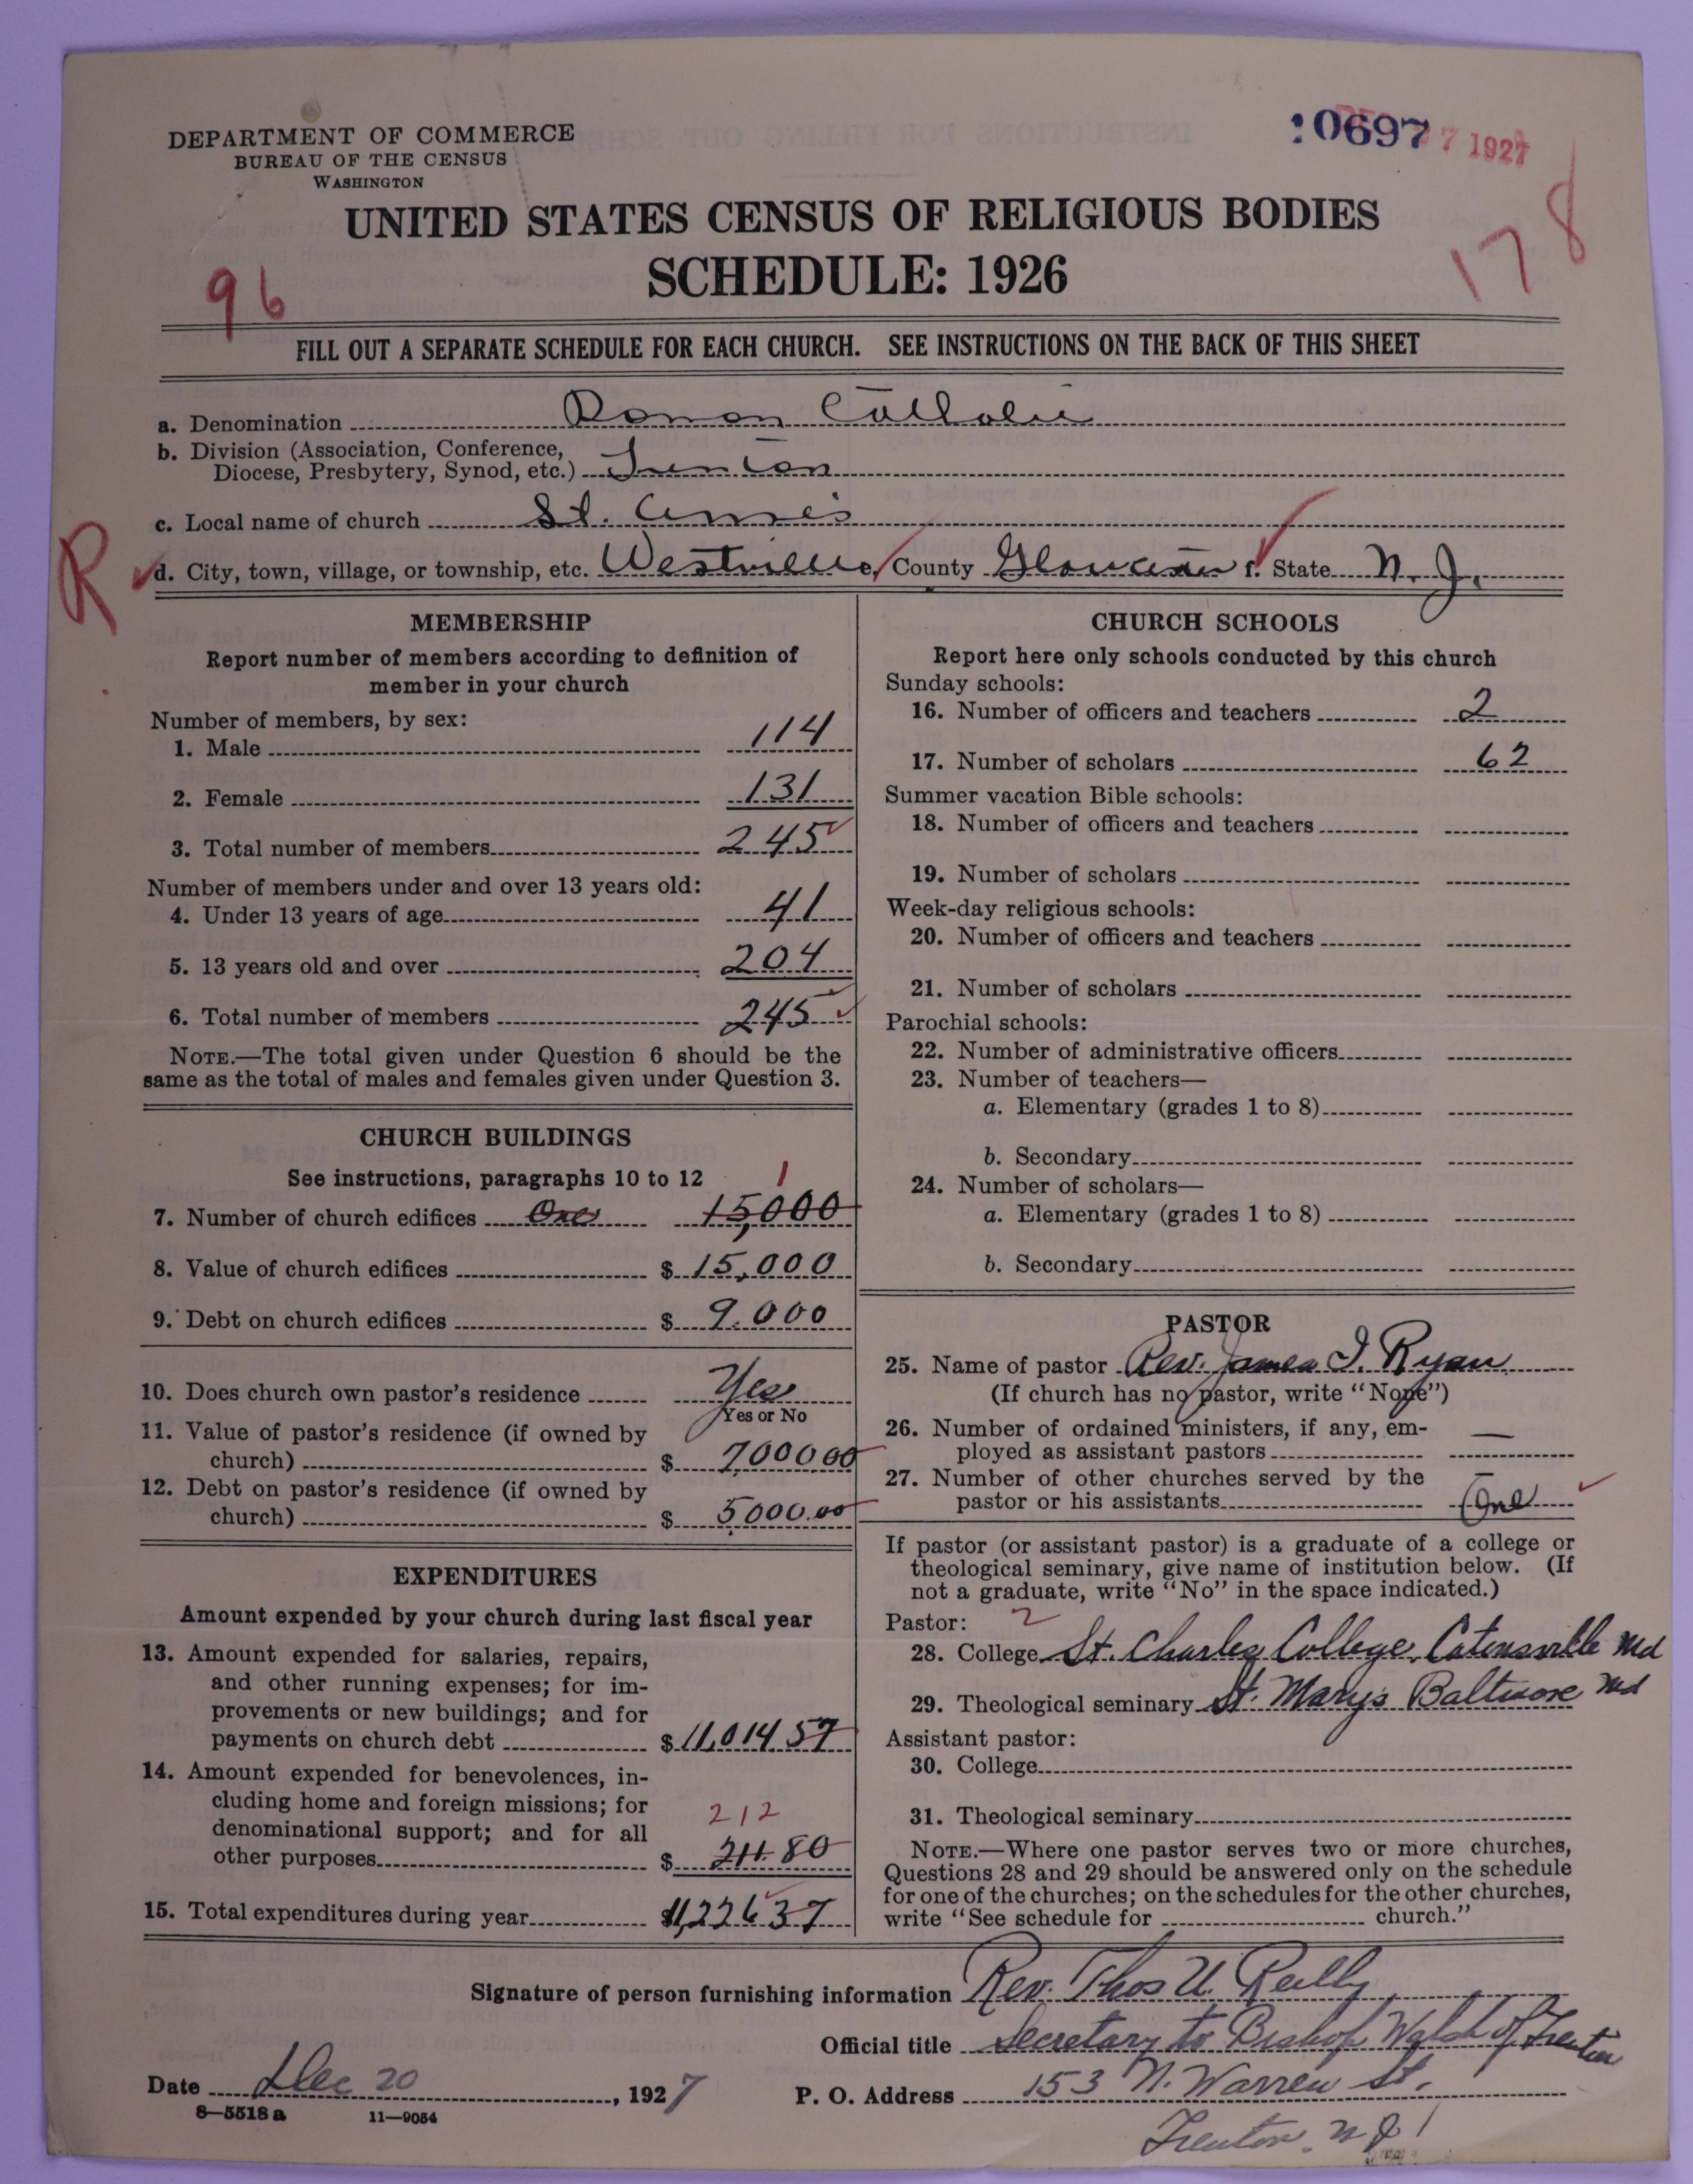 DEPARTMENT OF COMMERCE
BUREAU OF THE CENSUS
WASHINGTON
:0697 7 1927
UNITED STATES CENSUS OF RELIGIOUS BODIES
SCHEDULE: 1926
96
178
FILL OUT A SEPARATE SCHEDULE FOR EACH CHURCH. SEE INSTRUCTIONS ON THE BACK OF THIS SHEET
a. Denomination Roman Catholic
b. Division (Association, Conference,
Diocese, Presbytery, Synod, etc.) Trenton
c. Local name of church St. Anne's
R
d. City, town, village, or township, etc. Westville, County Gloucester f. State N. J.
MEMBERSHIP
Report number of members according to definition of
member in your church
Number of members, by sex:
1. Male 114
2. Female 131
3. Total number of members 245
Number of members under and over 13 years old:
4. Under 13 years of age 41
5. 13 years old and over 204
6. Total number of members 245
NOTE.—The total given under Question 6 should be the
same as the total of males and females given under Question 3.
CHURCH BUILDINGS
See instructions, paragraphs 10 to 12
1
7. Number of church edifices One 15,000
8. Value of church edifices $ 15,000
9. Debt on church edifices $ 9,000
10. Does church own pastor's residence Yes
Yes or No
11. Value of pastor's residence (if owned by
church) $ 7,000 00
12. Debt on pastor's residence (if owned by
church) $ 5,000.00
EXPENDITURES
Amount expended by your church during last fiscal year
13. Amount expended for salaries, repairs,
and other running expenses; for im-
provements or new buildings; and for
payments on church debt $ 11,014 57
14. Amount expended for benevolences, in-
cluding home and foreign missions; for
denominational support; and for all
212
other purposes $ 211.80
15. Total expenditures during year $11,226 37
CHURCH SCHOOLS
Report here only schools conducted by this church
Sunday schools:
16. Number of officers and teachers 2
17. Number of scholars 62
Summer vacation Bible schools:
18. Number of officers and teachers
19. Number of scholars
Week-day religious schools:
20. Number of officers and teachers
21. Number of scholars
Parochial schools:
22. Number of administrative officers
23. Number of teachers—
a. Elementary (grades 1 to 8)
b. Secondary
24. Number of scholars—
a. Elementary (grades 1 to 8)
b. Secondary
PASTOR
25. Name of pastor Rev. James I. Ryan
(If church has no pastor, write "None")
26. Number of ordained ministers, if any, em-
ployed as assistant pastors —
27. Number of other churches served by the
pastor or his assistants One
If pastor (or assistant pastor) is a graduate of a college or
theological seminary, give name of institution below. (If
not a graduate, write "No" in the space indicated.)
Pastor: 2
28. College St. Charles College, Catonsville Md
29. Theological seminary St. Mary's Baltimore Md
Assistant pastor:
30. College
31. Theological seminary
NOTE.—Where one pastor serves two or more churches,
Questions 28 and 29 should be answered only on the schedule
for one of the churches; on the schedules for the other churches,
write "See schedule for church."
Signature of person furnishing information Rev. Thos U. Reilly
Official title Secretary to Bishop Walsh of Trenton
Date Dec 20, 1927
P. O. Address 153 N. Warren St.
Trenton. N J
8—5518 a 11—9054